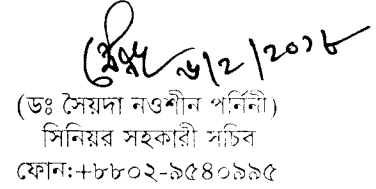 ৬/২/২০১৮
(ডঃ সৈয়দা নওশীন পর্নিনী)
সিনিয়র সহকারী সচিব
ফোন:+৮৮০২-৯৫৪০৯৯৫